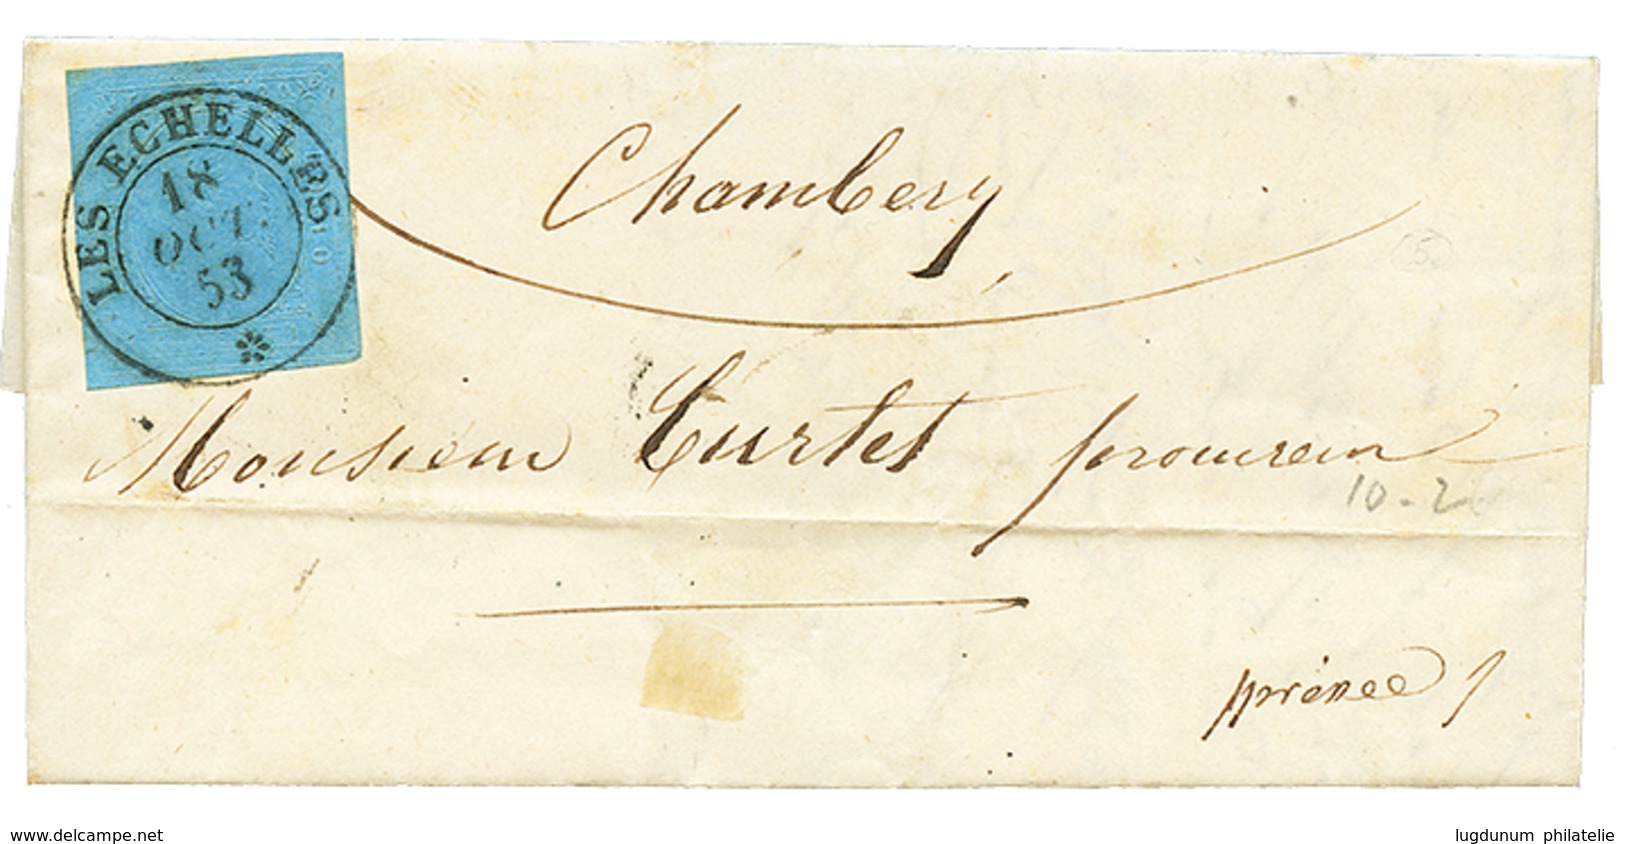 LES ECHELLES
18
OCT.
53
Chambery,
Monsieur Curtet procureur
10-2
(5)
delcampe.net
lugdunum philatelie